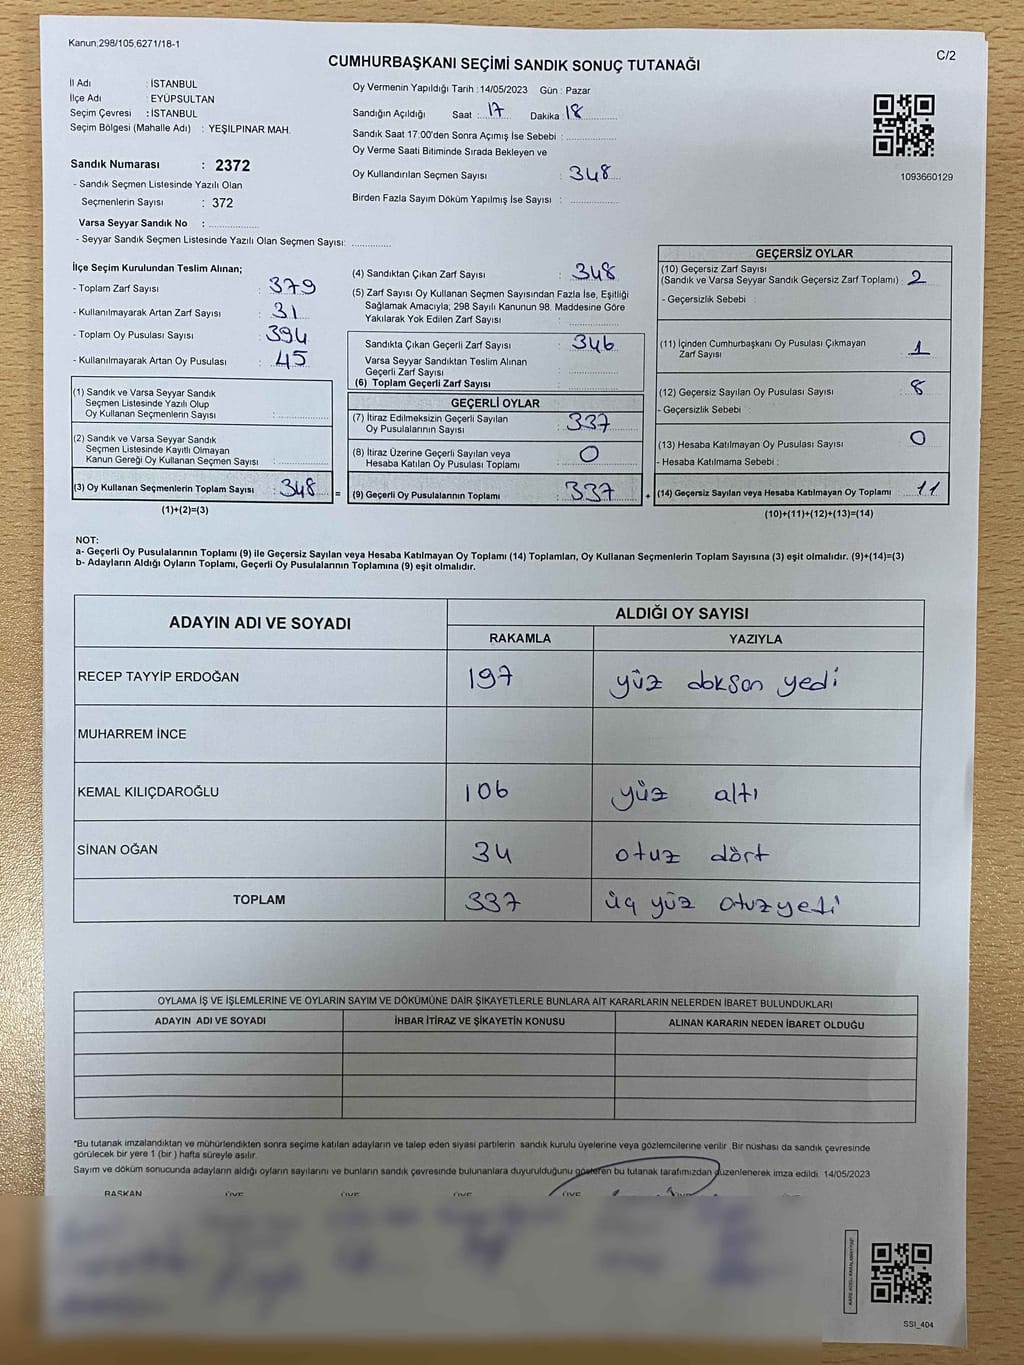 Kanun;298/105,6271/18-1
C/2
CUMHURBAŞKANI SEÇİMİ SANDIK SONUÇ TUTANAĞI
İl Adı : İSTANBUL
İlçe Adı : EYÜPSULTAN
Seçim Çevresi : İSTANBUL
Seçim Bölgesi (Mahalle Adı) : YEŞİLPINAR MAH.
Sandık Numarası : 2372
- Sandık Seçmen Listesinde Yazılı Olan
Seçmenlerin Sayısı : 372
Varsa Seyyar Sandık No :
- Seyyar Sandık Seçmen Listesinde Yazılı Olan Seçmen Sayısı:
Oy Vermenin Yapıldığı Tarih : 14/05/2023 Gün : Pazar
Sandığın Açıldığı Saat : 17 Dakika : 18
Sandık Saat 17:00'den Sonra Açımış İse Sebebi :
Oy Verme Saati Bitiminde Sırada Bekleyen ve
Oy Kullandırılan Seçmen Sayısı : 348
Birden Fazla Sayım Döküm Yapılmış İse Sayısı :
1093660129
İlçe Seçim Kurulundan Teslim Alınan;
- Toplam Zarf Sayısı : 379
- Kullanılmayarak Artan Zarf Sayısı : 31
- Toplam Oy Pusulası Sayısı : 394
- Kullanılmayarak Artan Oy Pusulası : 45
(1) Sandık ve Varsa Seyyar Sandık
Seçmen Listesinde Yazılı Olup
Oy Kullanan Seçmenlerin Sayısı :
(2) Sandık ve Varsa Seyyar Sandık
Seçmen Listesinde Kayıtlı Olmayan
Kanun Gereği Oy Kullanan Seçmen Sayısı :
(3) Oy Kullanan Seçmenlerin Toplam Sayısı : 348 =
(1)+(2)=(3)
(4) Sandıktan Çıkan Zarf Sayısı : 348
(5) Zarf Sayısı Oy Kullanan Seçmen Sayısından Fazla İse, Eşitliği
Sağlamak Amacıyla; 298 Sayılı Kanunun 98. Maddesine Göre
Yakılarak Yok Edilen Zarf Sayısı :
Sandıkta Çıkan Geçerli Zarf Sayısı : 346
Varsa Seyyar Sandıktan Teslim Alınan
Geçerli Zarf Sayısı :
(6) Toplam Geçerli Zarf Sayısı :
GEÇERLİ OYLAR
(7) İtiraz Edilmeksizin Geçerli Sayılan
Oy Pusulalarının Sayısı : 337
(8) İtiraz Üzerine Geçerli Sayılan veya
Hesaba Katılan Oy Pusulası Toplamı : 0
(9) Geçerli Oy Pusulalarının Toplamı : 337 +
GEÇERSİZ OYLAR
(10) Geçersiz Zarf Sayısı
(Sandık ve Varsa Seyyar Sandık Geçersiz Zarf Toplamı) : 2
- Geçersizlik Sebebi :
(11) İçinden Cumhurbaşkanı Oy Pusulası Çıkmayan
Zarf Sayısı : 1
(12) Geçersiz Sayılan Oy Pusulası Sayısı : 8
- Geçersizlik Sebebi :
(13) Hesaba Katılmayan Oy Pusulası Sayısı : 0
- Hesaba Katılmama Sebebi :
(14) Geçersiz Sayılan veya Hesaba Katılmayan Oy Toplamı : 11
(10)+(11)+(12)+(13)=(14)
NOT:
a- Geçerli Oy Pusulalarının Toplamı (9) ile Geçersiz Sayılan veya Hesaba Katılmayan Oy Toplamı (14) Toplamları, Oy Kullanan Seçmenlerin Toplam Sayısına (3) eşit olmalıdır. (9)+(14)=(3)
b- Adayların Aldığı Oyların Toplamı, Geçerli Oy Pusulalarının Toplamına (9) eşit olmalıdır.
ADAYIN ADI VE SOYADI
ALDIĞI OY SAYISI
RAKAMLA YAZIYLA
RECEP TAYYİP ERDOĞAN 197 yüz dokson yedi
MUHARREM İNCE
KEMAL KILIÇDAROĞLU 106 yüz altı
SİNAN OĞAN 34 otuz dört
TOPLAM 337 üç yüz otuzyedi
OYLAMA İŞ VE İŞLEMLERİNE VE OYLARIN SAYIM VE DÖKÜMÜNE DAİR ŞİKAYETLERLE BUNLARA AİT KARARLARIN NELERDEN İBARET BULUNDUKLARI
ADAYIN ADI VE SOYADI İHBAR İTİRAZ VE ŞİKAYETİN KONUSU ALINAN KARARIN NEDEN İBARET OLDUĞU
*Bu tutanak imzalandıktan ve mühürlendikten sonra seçime katılan adayların ve talep eden siyasi partilerin sandık kurulu üyelerine veya gözlemcilerine verilir. Bir nüshası da sandık çevresinde
görülecek bir yere 1 (bir ) hafta süreyle asılır.
Sayım ve döküm sonucunda adayların aldığı oyların sayılarını ve bunların sandık çevresinde bulunanlara duyurulduğunu gösteren bu tutanak tarafımızdan düzenlenerek imza edildi. 14/05/2023
BAŞKAN ÜYE ÜYE ÜYE ÜYE ÜYE
SSI_404